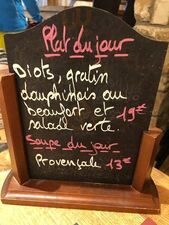 Plat du jour
Diots, gratin
dauphinois au
beaufort et 19€
salade verte.
Soupe du jour
Provençale 13€